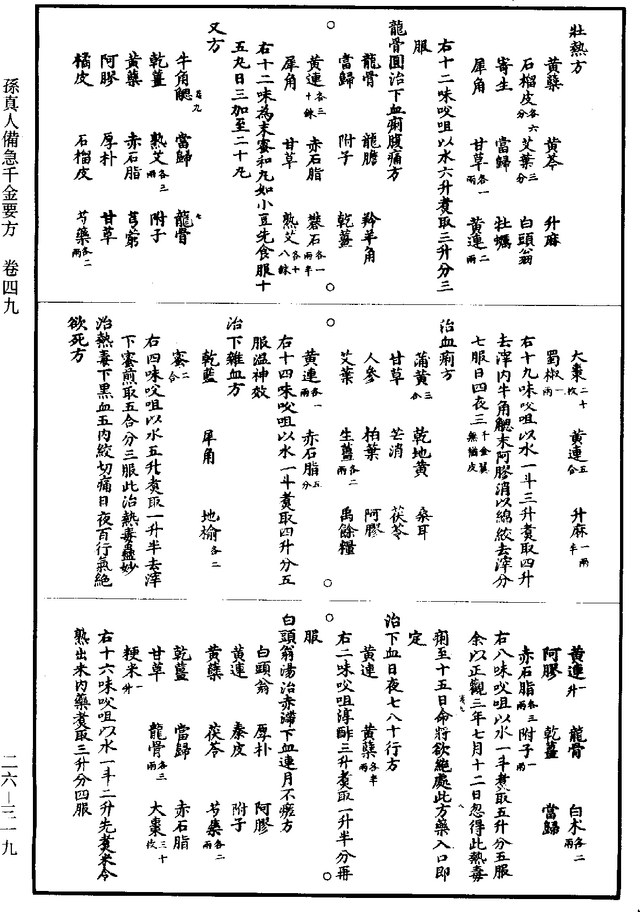 孫真人備急千金要方　卷四九
壯熱方
黃蘗　黃芩　升麻
石榴皮各六分　艾葉三分　白頭翁
寄生　當歸　牡蠣
犀角　甘草各一兩　黃連二兩
右十二味㕮咀以水六升煑取三升分三
服
龍骨圓治下血痢腹痛方
龍骨　龍膽　羚羊角
當歸　附子　乾薑
黃連各三十銖　赤石脂　礬石各一兩半
犀角　甘草　熟艾各十八銖
右十二味為末蜜和丸如小豆先食服十
五丸日三加至二十丸
又方
牛角䚡　當歸　龍骨
乾薑　熟艾各三兩　附子
黃蘗　赤石脂　芎藭
阿膠　厚朴　甘草
橘皮　石榴皮　芍藥各二兩
大棗二十枚　黃連五合　升麻一兩半
蜀椒一兩
右十九味㕮咀以水一斗三升煑取四升
去滓內牛角䚡末阿膠消以綿絞去滓分
七服日四夜三千金翼無橘皮
治血痢方
蒲黃三合　乾地黃　桑耳
甘草　芒消　茯苓
人參　柏葉　阿膠
艾葉　生薑各二兩　禹餘糧
黃連各一兩　赤石脂五分
右十四味㕮咀以水一斗煑取四升分五
服溫神效
治下雜血方
乾藍　犀角　地榆各二兩
蜜二合
右四味㕮咀以水五升煑取一升半去滓
下蜜煎取五合分三服此治熱毒蠱妙
治熱毒下黑血五內絞切痛日夜百行氣絕
欲死方
黃連一升　龍骨　白朮各二兩
阿膠　乾薑　當歸
赤石脂各三兩　附子一兩
右八味㕮咀以水一斗煑取五升分五服
余以正觀三年七月十二日忽得此熱毒
痢至十五日命將欲絕處此方藥入口即
定
治下血日夜七八十行方
黃連　黃蘗各半兩
右二味㕮咀淳酢三升煑取一升半分再
服
白頭翁湯治赤滯下血連月不瘥方
白頭翁　厚朴　阿膠
黃連　秦皮　附子
黃蘗　茯苓　芍藥各二兩
乾薑　當歸　赤石脂
甘草　龍骨各三兩　大棗三十枚
粳米一升
右十六味㕮咀以水一斗二升先煑米令
熟出米內藥煑取三升分四服
二六—三一九